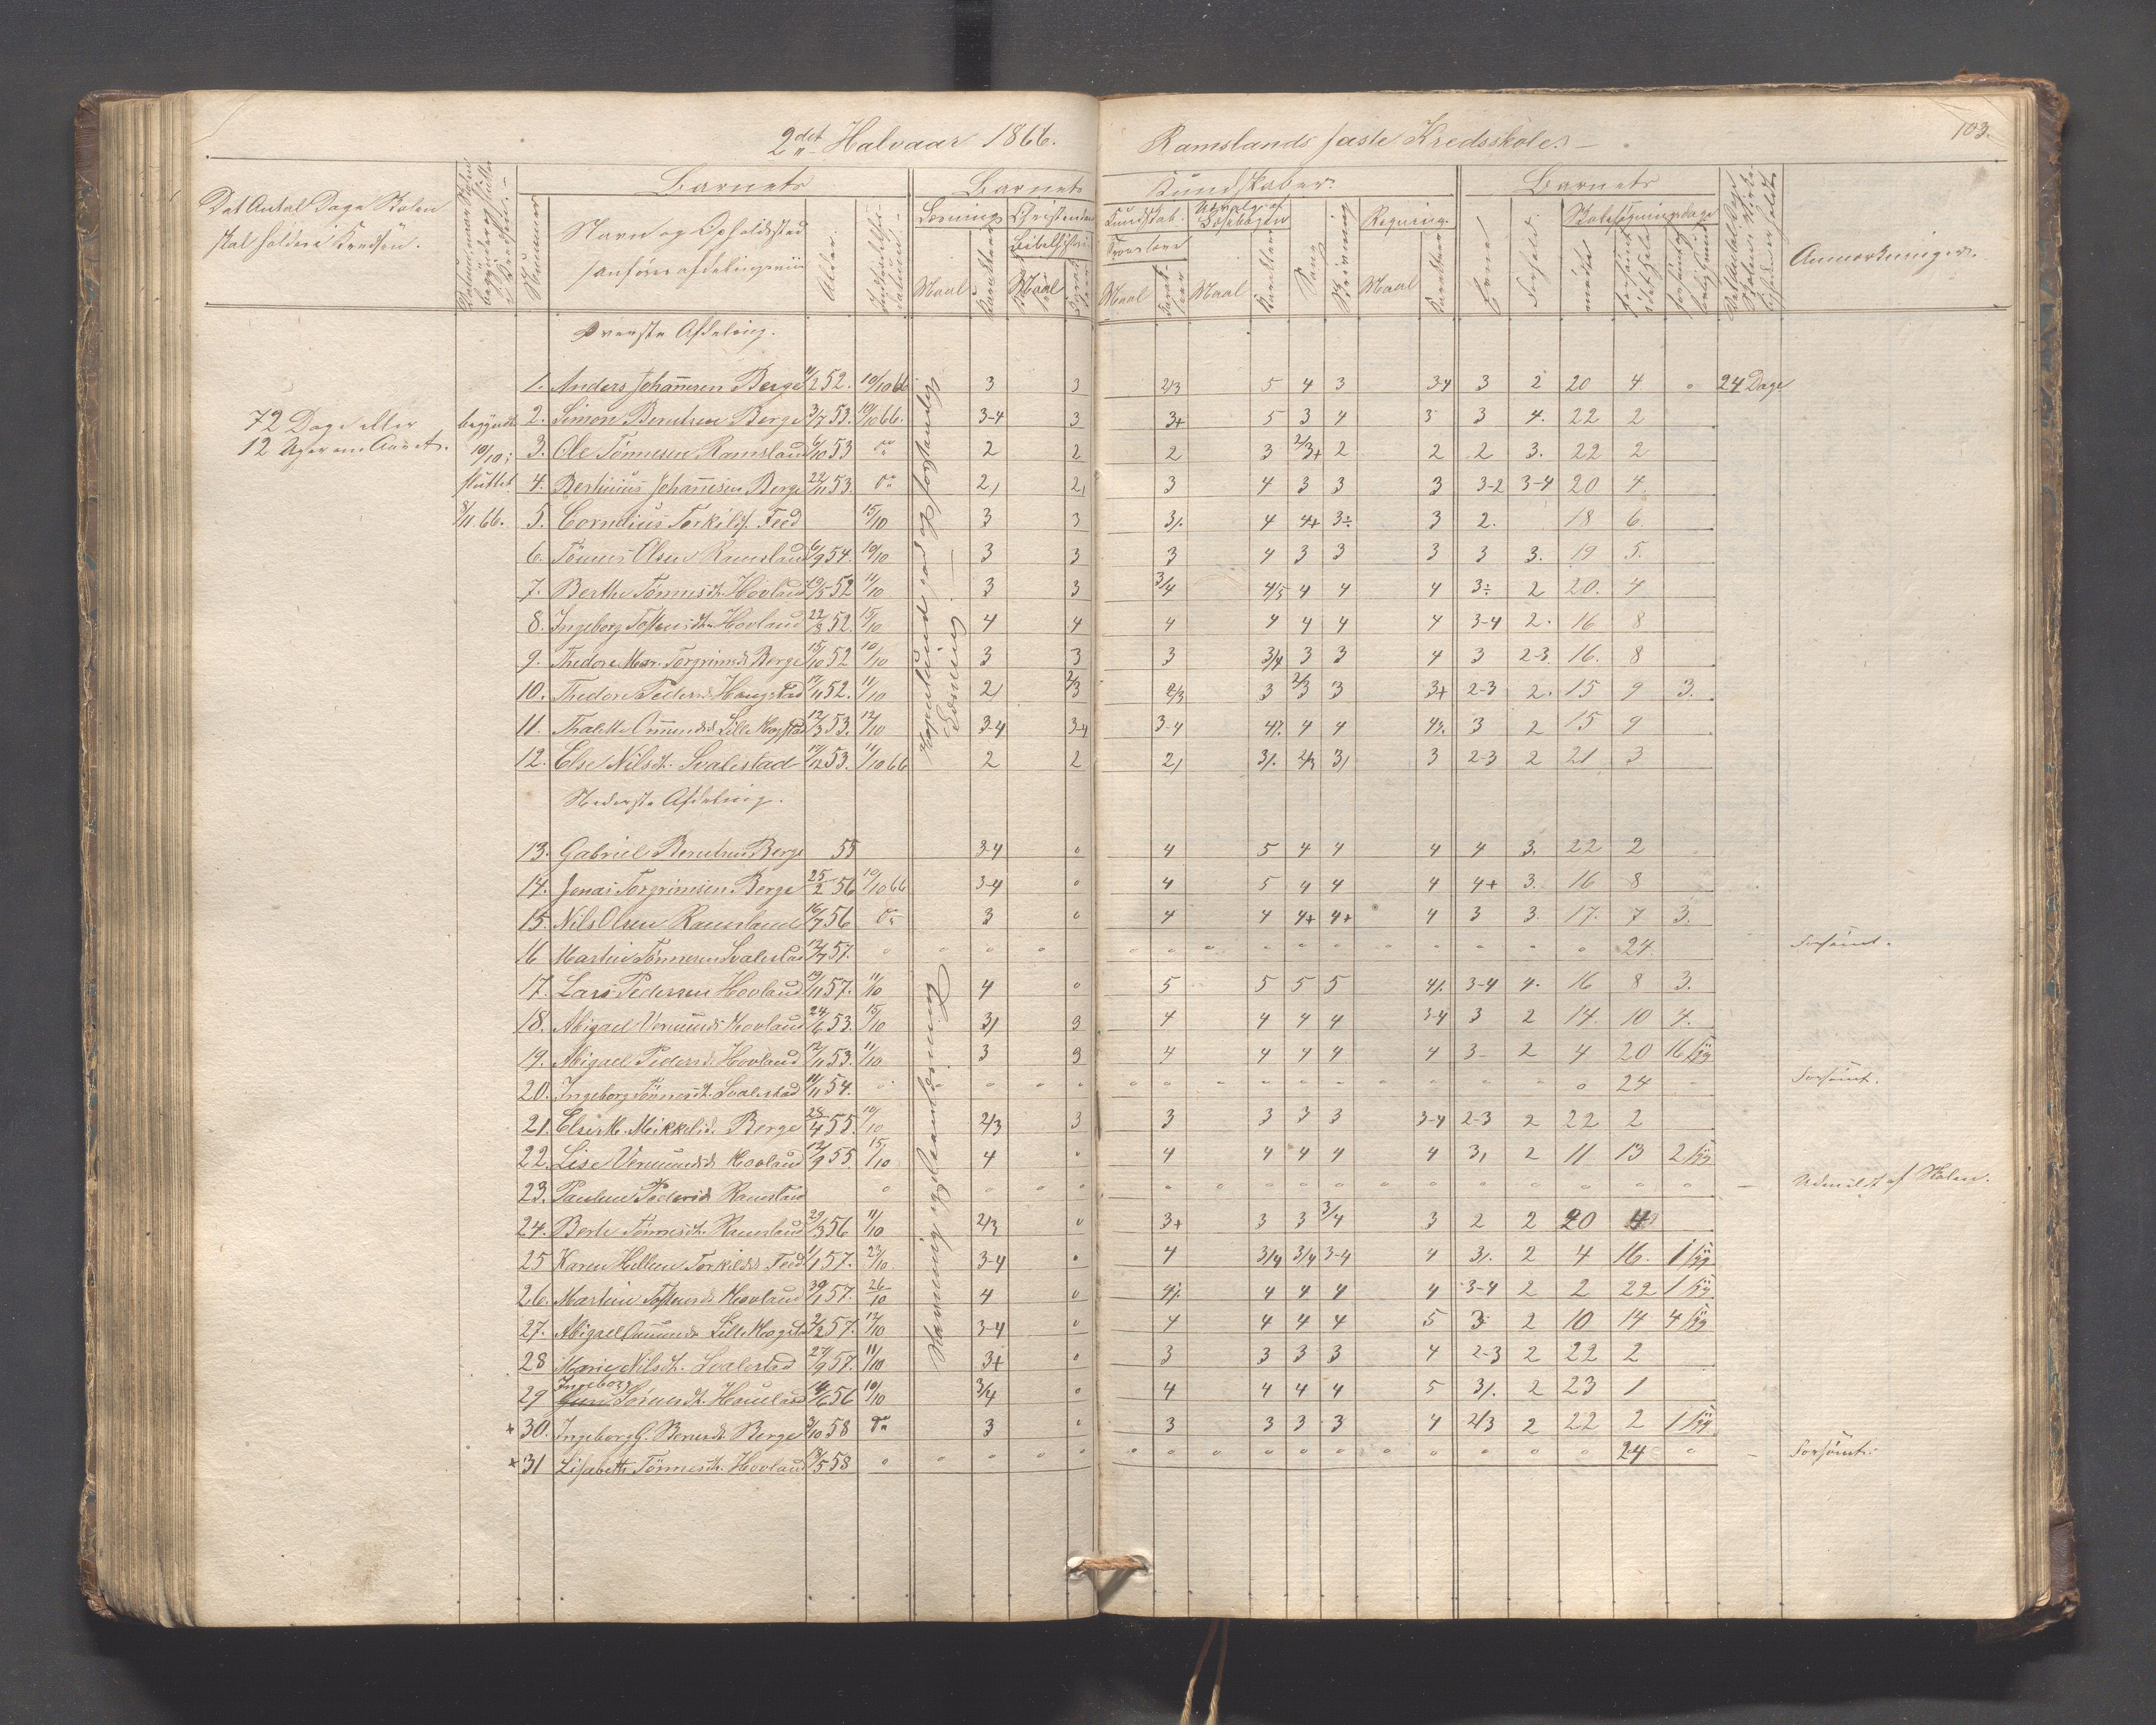 2det Halvaar 1866.
Ramslands faste Kredsskole.
103.
Det Antal Dage Skolen skal holdes i Kredsen.
Datum, naar Skolen begynder og slutter i Kredsen.
Barnets
Nummer
Navn og Opholdssted
Alder.
Indtrædelses-datum.
Barnets
Kundskaber.
Læsning
Maal
Karakter
Christendoms
Bibelhistorie
Maal
Kundskab.
Troeslære
Maal
Udvalg af Læsebogen
Maal
Karakter
Sang
Skrivning
Regning.
Maal
Karakter
Barnets
Evne
Forhold.
Skolesøgningsdage
mødt
forsømt i det Hele
Anmærkninger.
Øverste Afdeling.
1. Anders Johannesen Berge 11/2 52. 10/10 66 3 3 2/3 5 4 3 3-4 3 2 20 4 0 24 Dage
72 Dage eller
begyndt 2. Simon Berntsen Berge 3/7 53. 10/10 66. 3-4 3 3+ 5 3 4 3 3 4. 22 2
12 Uger om Aaret.
10/10; 3. Ole Tønnesen Ramsland 6/10 53 do 2 2 2 3 2/3+ 2 2 2 3. 22 2
sluttet 4. Bertinius Johannesen Berge 22/11 53. do 2, 2, 3 4 3 3 3 3-2 3-4 20 4
8/11 66. 5. Cornelius Torkilds. Feed 15/10 3 3 3/. 4 4+ 3÷ 3 2. 18 6.
6. Tønnes Olsen Ramsland 6/9 54. 10/10 3 3 3 4 3 3 3 3 3. 19 5.
7. Berthe Tønnesdt. Hovland 19/5 52 11/10 3 3 3/4 4/5 4 4 4 3÷ 2 20. 4
8. Ingeborg Tostensdt. Hovland 22/3 52. 15/10 4 4 4 4 4 4 4 3-4 2. 16 8
9. Thedore Mar. Torgrimsd. Berge 15/10 52 10/10 3 3 3 3/4 3 3 4 3 2-3. 16. 8
10. Thedore Pedersd. Haugstad 17/11 52. 11/10 2, 2/3 2/3 3 2/3 3 3+ 2-3 2. 15 9 3.
11. Thalette Omundsd. Lille Mogstad 12/3 53. 12/10 3-4 3-4 3-4 4/. 4 4 4/. 3 2 15 9
12. Else Nilsdt. Svalestad 17/12 53. 11/10 66 2 2 2, 3/. 2/3 3, 3 2-3 2 21 3
Nederste Afdeling.
13. Gabriel Berntsen Berge 55 3-4 0 4 5 4 4 4 4 3. 22 2
14. Jonas Torgrimsen Berge 25/2 56 10/10 66 3-4 0 4 5 4 4 4 4+ 3. 16 8
15. Nils Olsen Ramsland 16/7 56 do 3 0 4 4 4+ 4+ 4 3 3. 17. 7 3.
16 Martin Tønnesen Svalestad 12/7 57. 24. Forsømt.
17. Lars Pedersen Hovland 19/11 57. 11/10 4 0 5 5 5 5 4/. 3-4 4. 16 8 3.
18. Abigael Vermundsd. Hovland 24/6 53. 15/10 3, 3 4 4 4 4 3-4 3 2 14. 10 4.
19. Abigael Pedersd. Hovland 12/11 53. 11/10 3 3 4 4 4 4 4 3- 2 4 20 16 syg
20. Ingeborg Tønnesdt. Svalestad 11/11 54. 24 Forsømt.
21. Else M. Mikkelsd. Berge 28/4 55. 10/10 2/3 3 3 3 3 3 3-4 2-3 2 22 2
22. Lise Vermundsd. Hovland 12/9 55. 15/10 4 0 4 4 4 4 4 3, 2 11 13 2 syg
23. Pauline Pedersd. Ramsland Udmeldt af Skolen.
24. Berte Tønnesdt. Ramsland 29/3 56 11/10 2/3 0 3+ 3 3 3/4 3 2 2 20 4
25 Karen Hellene Torkilds Feed 1/1 57. 23/10. 3-4 0 4 3/4 3/4 3-4 4 3/. 2 4 16. 1 syg
26. Martine Tostensd. Hovland 30/1 57. 26/10 4 0 4/. 4 4 4 4 3-4 2 2 22 1 syg
27. Abigael Omundsd. Lille Mogstad 2/2 57. 12/10 3-4 0 4 4 4 4 5 3 2 10 14 4 syg
28 Marie Nilsdt. Svalestad 27/9 57. 11/10 3+ 0 3 3 3 3 4 2-3 2 22 2
29 Ingeborg Sørensdt. Haneland 14/6 56 10/10 3/4 0 4 4 4 4 5 3/. 2 23 1
+ 30. Ingeborg G. Berntsd. Berge 3/10 58 do 3 0 3 3 3 3 4 2/3 2 22 2 1 syg
+ 31 Lisabette Tønnesdt. Hovland 13/5 58 24 Forsømt.
Udenadlæsning og forstandig Læsning.
Stavning og Udenadlæsning